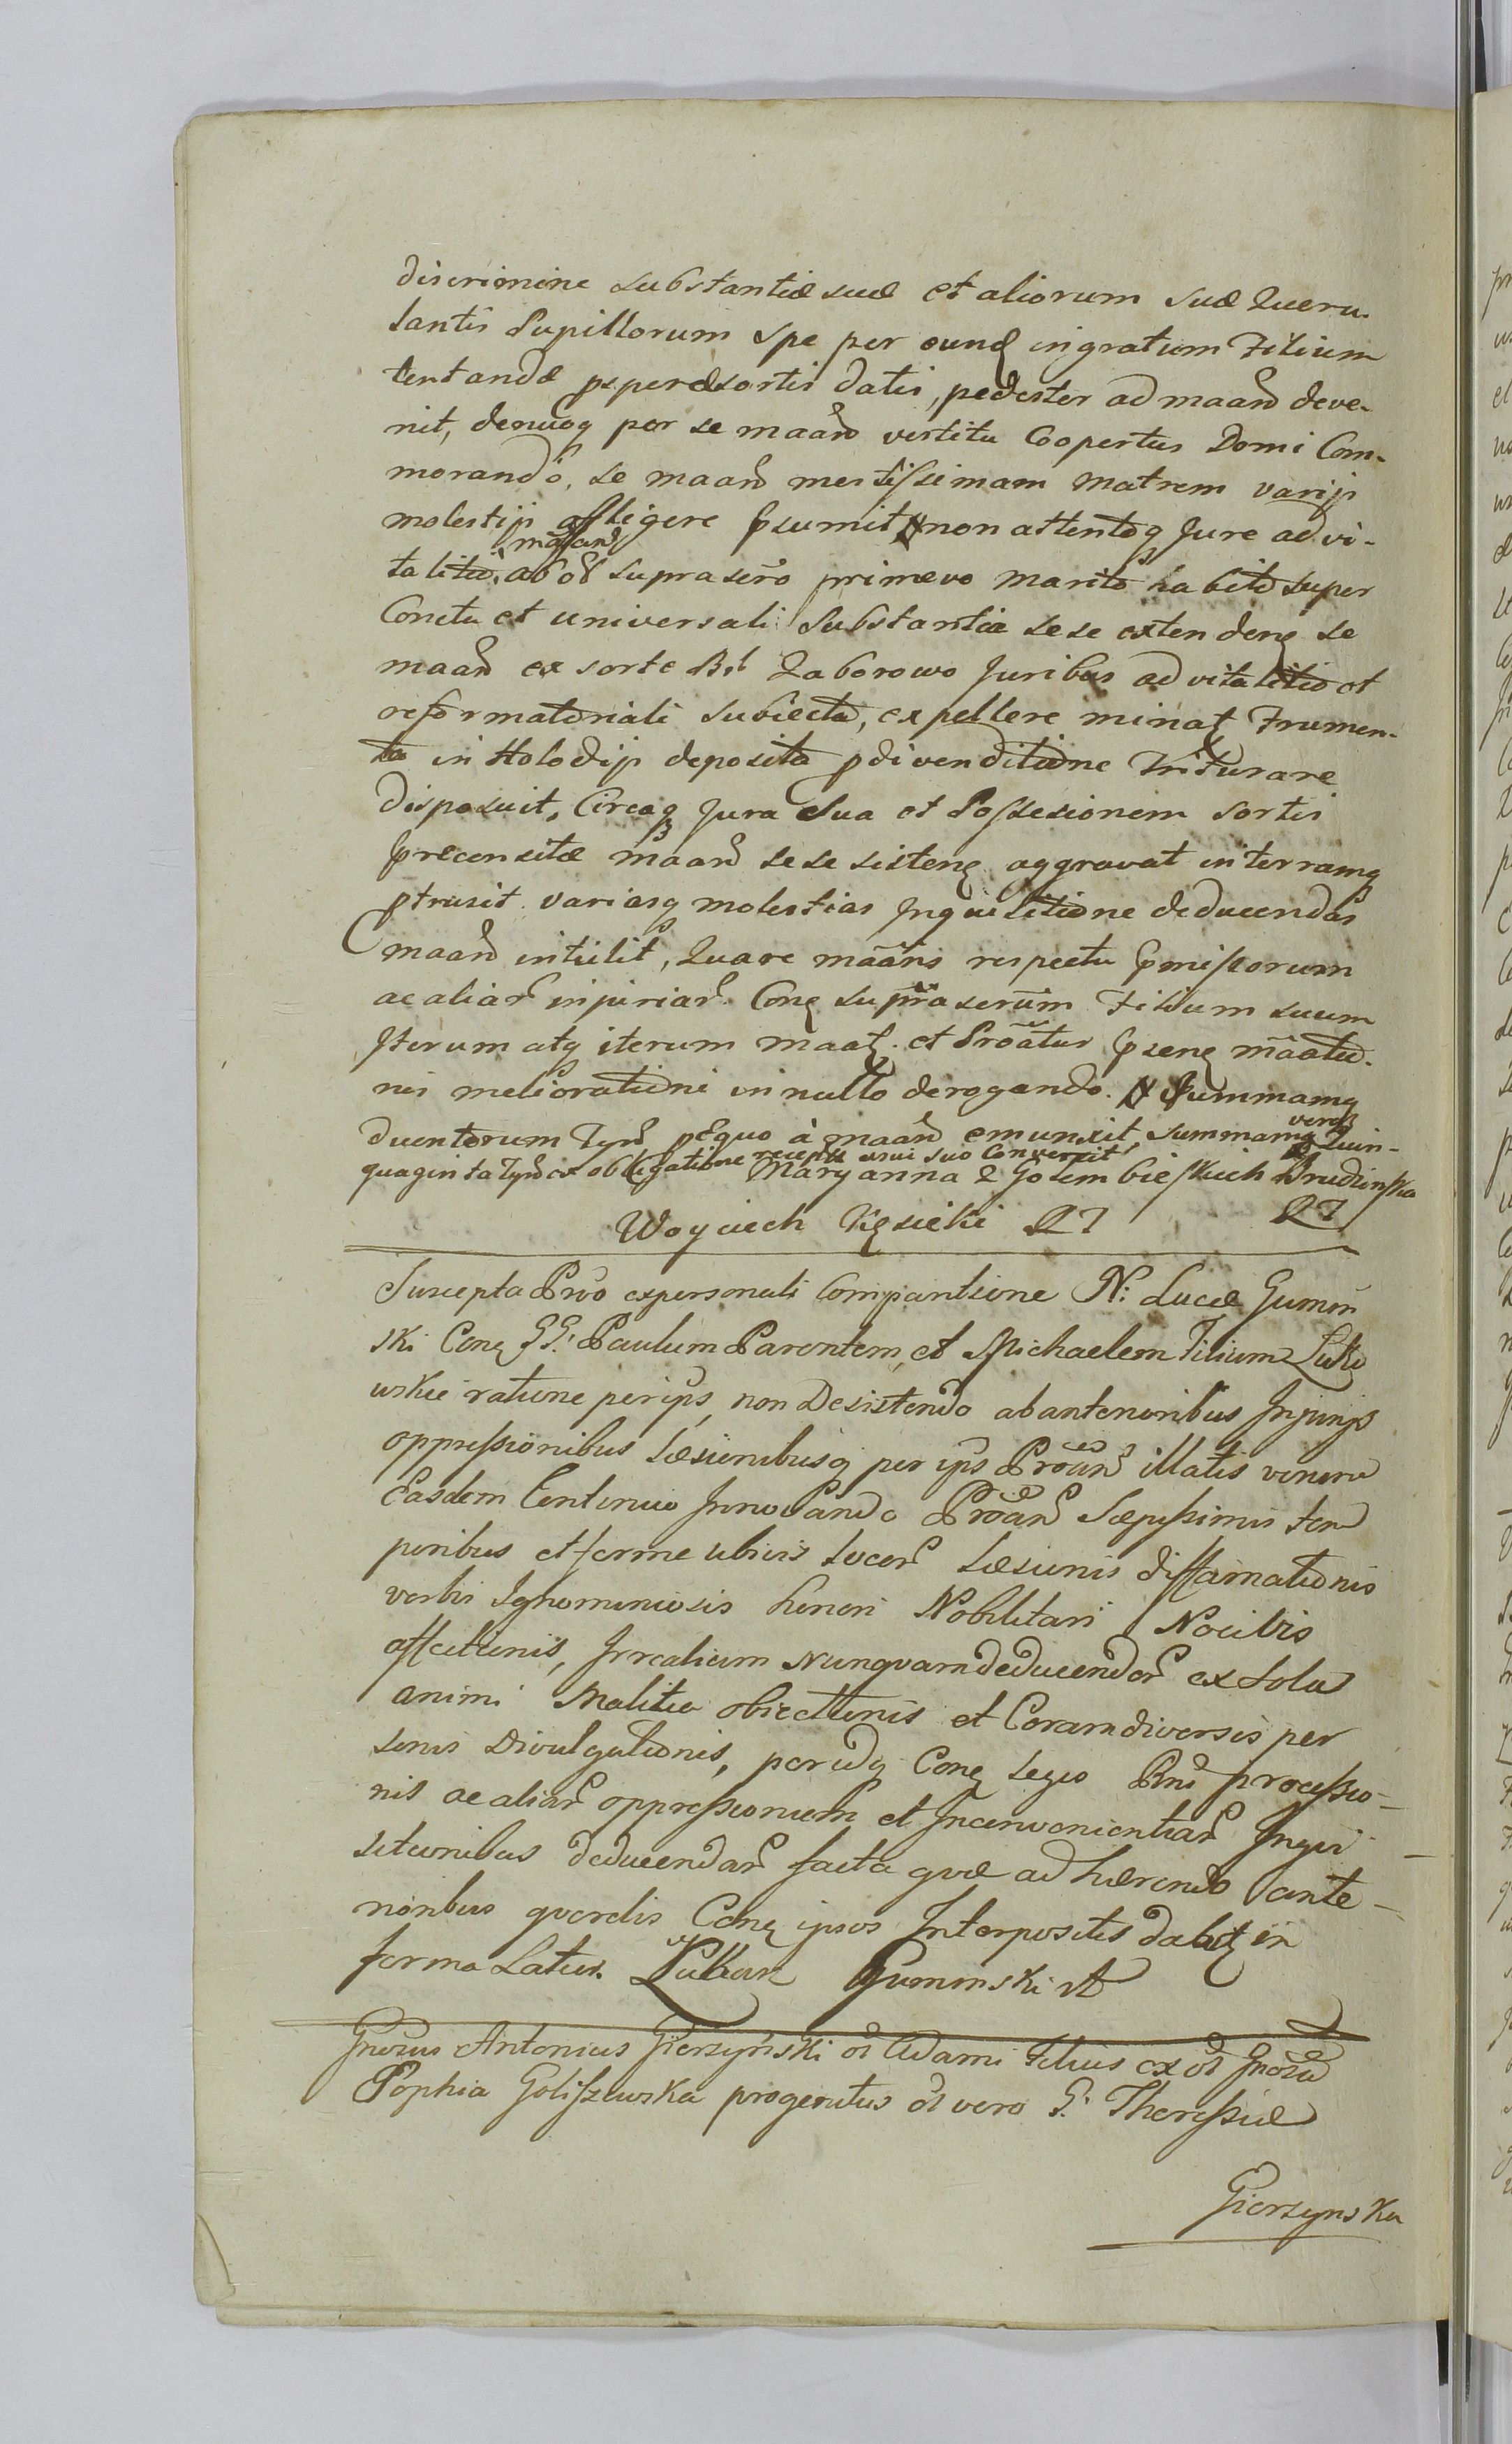 discrimine substantiæ suæ et aliorum suæ Queru-
lantis Pupillorum spe per eund ingratum Filium
tentandæ sortis datis, pedester ad maand deve-
nit, denuoq per se maand vestitu Coopertus Domi Com-
morando, se maand mestissimam Matrem varijs
molestijs affligere psumit non attentoq Jure advi-
maand
talitio, ab ol suprascro primævo Marito habito super
Concta et universali Substantia sese extendeng se
maand ex sorte Bs Zaborowo Juribus advitalitio et
reformatoriali subiecta, expellere minat Frumen-
ta in Holodijs deposita p divenditione Triturare
disposuit, Circaq Jura Sua et Possesionem sortis
precensitæ maand sese sisteng aggravat interramq
ptrusit variasq molestias Inquisitione deducendas
maand intulit, Quare maans respectu pmissorum
ac aliar injuriar Cong suprascrum Filium suum
Iterum atq iterum maat et Proatur pseng maatio-
nis melioratidni in nullo derogando. Summamq
ducentorum Tynf á maand emunxit, summamq vero Quin-
quaginta Tynf ex obligatione recepta usui suo Convertit
Maryanna z Gołembieskich Brudzinska
Woyciech Kęsicki
Suscepta Prōo expersonali Comparitione N: Lucæ Gumin
ski Cong GG: Paulum Parentem, et Michaelem Filium Lutko
wskie ratione per ips, non Desistendo abanterioribus Injurijs
oppressionibus Læsionibusq per ips Proand illatis verum
Easdem Continuo Innovando Proand Sæpissimis tem
poribus et ferme ubivis locor Læsionis diffamationis
verbis Ignominiosis honori Nobilitari Nocivis
affectionis, Irrealium Nunquam deducendor ex sola
animi Malitia obiectionis et Coram diversis per
sonis Divulgationis, per idq Cong leges Rni processio-
nis ac aliar oppressionum et Inconvenientiar Inqui-
sitionibus deducendar facta quæ adhærendo ante-
rioribus querelis Cong ipsos Interpositis dabit in
forma Latior. Łukasz Guminski
Gnosus Antonius Gierzyński ol Adami Filius ex ol Gnosa
Sophia Goliszewska progenitus ol vero G: Theressiæ
Gierzynska